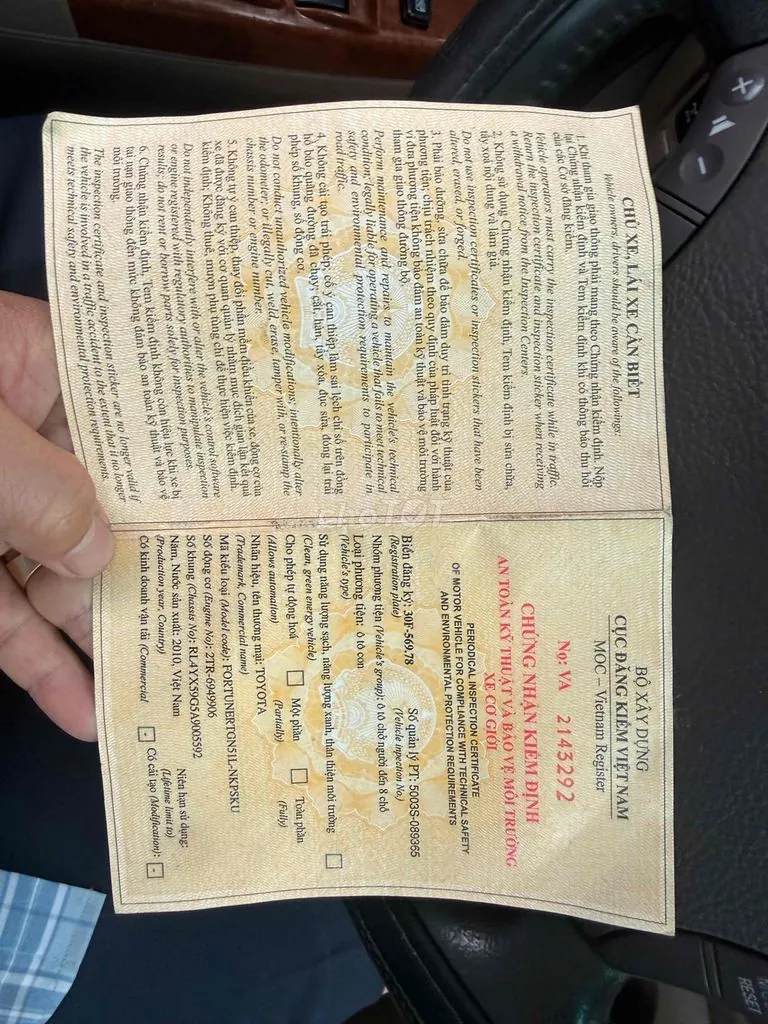 CHỦ XE, LÁI XE CẦN BIẾT
Vehicle owners, drivers should be aware of the followings
1. Khi tham gia giao thông phải mang theo Chứng nhận kiểm định. Nộp
lại Chứng nhận kiểm định và Tem kiểm định khi có thông báo thu hồi
của các Cơ sở đăng kiểm.
Vehicle operators must carry the inspection certificate while in traffic.
Return the inspection certificate and inspection sticker when receiving
a withdrawal notice from the Inspection Centers.
2. Không sử dụng Chứng nhận kiểm định, Tem kiểm định bị sửa chữa,
tẩy xoá nội dung và làm giả.
Do not use inspection certificates or inspection stickers that have been
altered, erased, or forged.
3. Phải bảo dưỡng, sửa chữa để bảo đảm duy trì tình trạng kỹ thuật của
phương tiện; chịu trách nhiệm theo quy định của pháp luật đối với hành
vi đưa phương tiện không bảo đảm an toàn kỹ thuật và bảo vệ môi trường
tham gia giao thông đường bộ.
Perform maintenance and repairs to maintain the vehicle's technical
condition; legally liable for operating a vehicle that fails to meet technical
safety and environmental protection requirements to participate in
road traffic.
4. Không cải tạo trái phép, cố ý can thiệp làm sai lệch chỉ số trên đồng
hồ báo quãng đường đã chạy; cắt, hàn, tẩy xóa, đục sửa, đóng lại trái
phép số khung, số động cơ.
Do not conduct unauthorized vehicle modifications; intentionally alter
the odometer; or illegally cut, weld, erase, tamper with, or re-stamp the
chassis number or engine number.
5. Không tự ý can thiệp, thay đổi phần mềm điều khiển của xe, động cơ của
xe đã được đăng ký với cơ quan quản lý nhằm mục đích gian lận kết quả
kiểm định; Không thuê, mượn phụ tùng chỉ để thực hiện việc kiểm định.
Do not independently interfere with or alter the vehicle's control software
or engine registered with regulatory authorities to manipulate inspection
results; do not rent or borrow parts solely for inspection purposes.
6. Chứng nhận kiểm định, Tem kiểm định không còn hiệu lực khi xe bị
tai nạn giao thông đến mức không đảm bảo an toàn kỹ thuật và bảo vệ
môi trường.
The inspection certificate and inspection sticker are no longer valid if
the vehicle is involved in a traffic accident to the extent that it no longer
meets technical safety and environmental protection requirements.
BỘ XÂY DỰNG
CỤC ĐĂNG KIỂM VIỆT NAM
MOC – Vietnam Register
No: VA 2143292
CHỨNG NHẬN KIỂM ĐỊNH
AN TOÀN KỸ THUẬT VÀ BẢO VỆ MÔI TRƯỜNG
XE CƠ GIỚI
PERIODICAL INSPECTION CERTIFICATE
OF MOTOR VEHICLE FOR COMPLIANCE WITH TECHNICAL SAFETY
AND ENVIRONMENTAL PROTECTION REQUIREMENTS
Biển đăng ký: 30F-569.78 Số quản lý PT: 5003S-089365
(Registration plate) (Vehicle inpection No.)
Nhóm phương tiện (Vehicle's group): ô tô chở người đến 8 chỗ
Loại phương tiện: ô tô con
(Vehicle's type)
Sử dụng năng lượng sạch, năng lượng xanh, thân thiện môi trường
(Clean, green energy vehicle)
Cho phép tự động hoá Một phần Toàn phần
(Allows automation) (Partially) (Fully)
Nhãn hiệu, tên thương mại: TOYOTA
(Trademark, Commercial name)
Mã kiểu loại (Model code): FORTUNERTGN51L-NKPSKU
Số động cơ (Engine No): 2TR-6949906
Số khung (Chassis No): RL4YX59G5A9005592
Năm, Nước sản xuất: 2010, Việt Nam Niên hạn sử dụng:
(Production year, Country) (Lifetime limit to)
Có kinh doanh vận tải (Commercial - Có cải tạo (Modification): -
RESET
chợTỐT